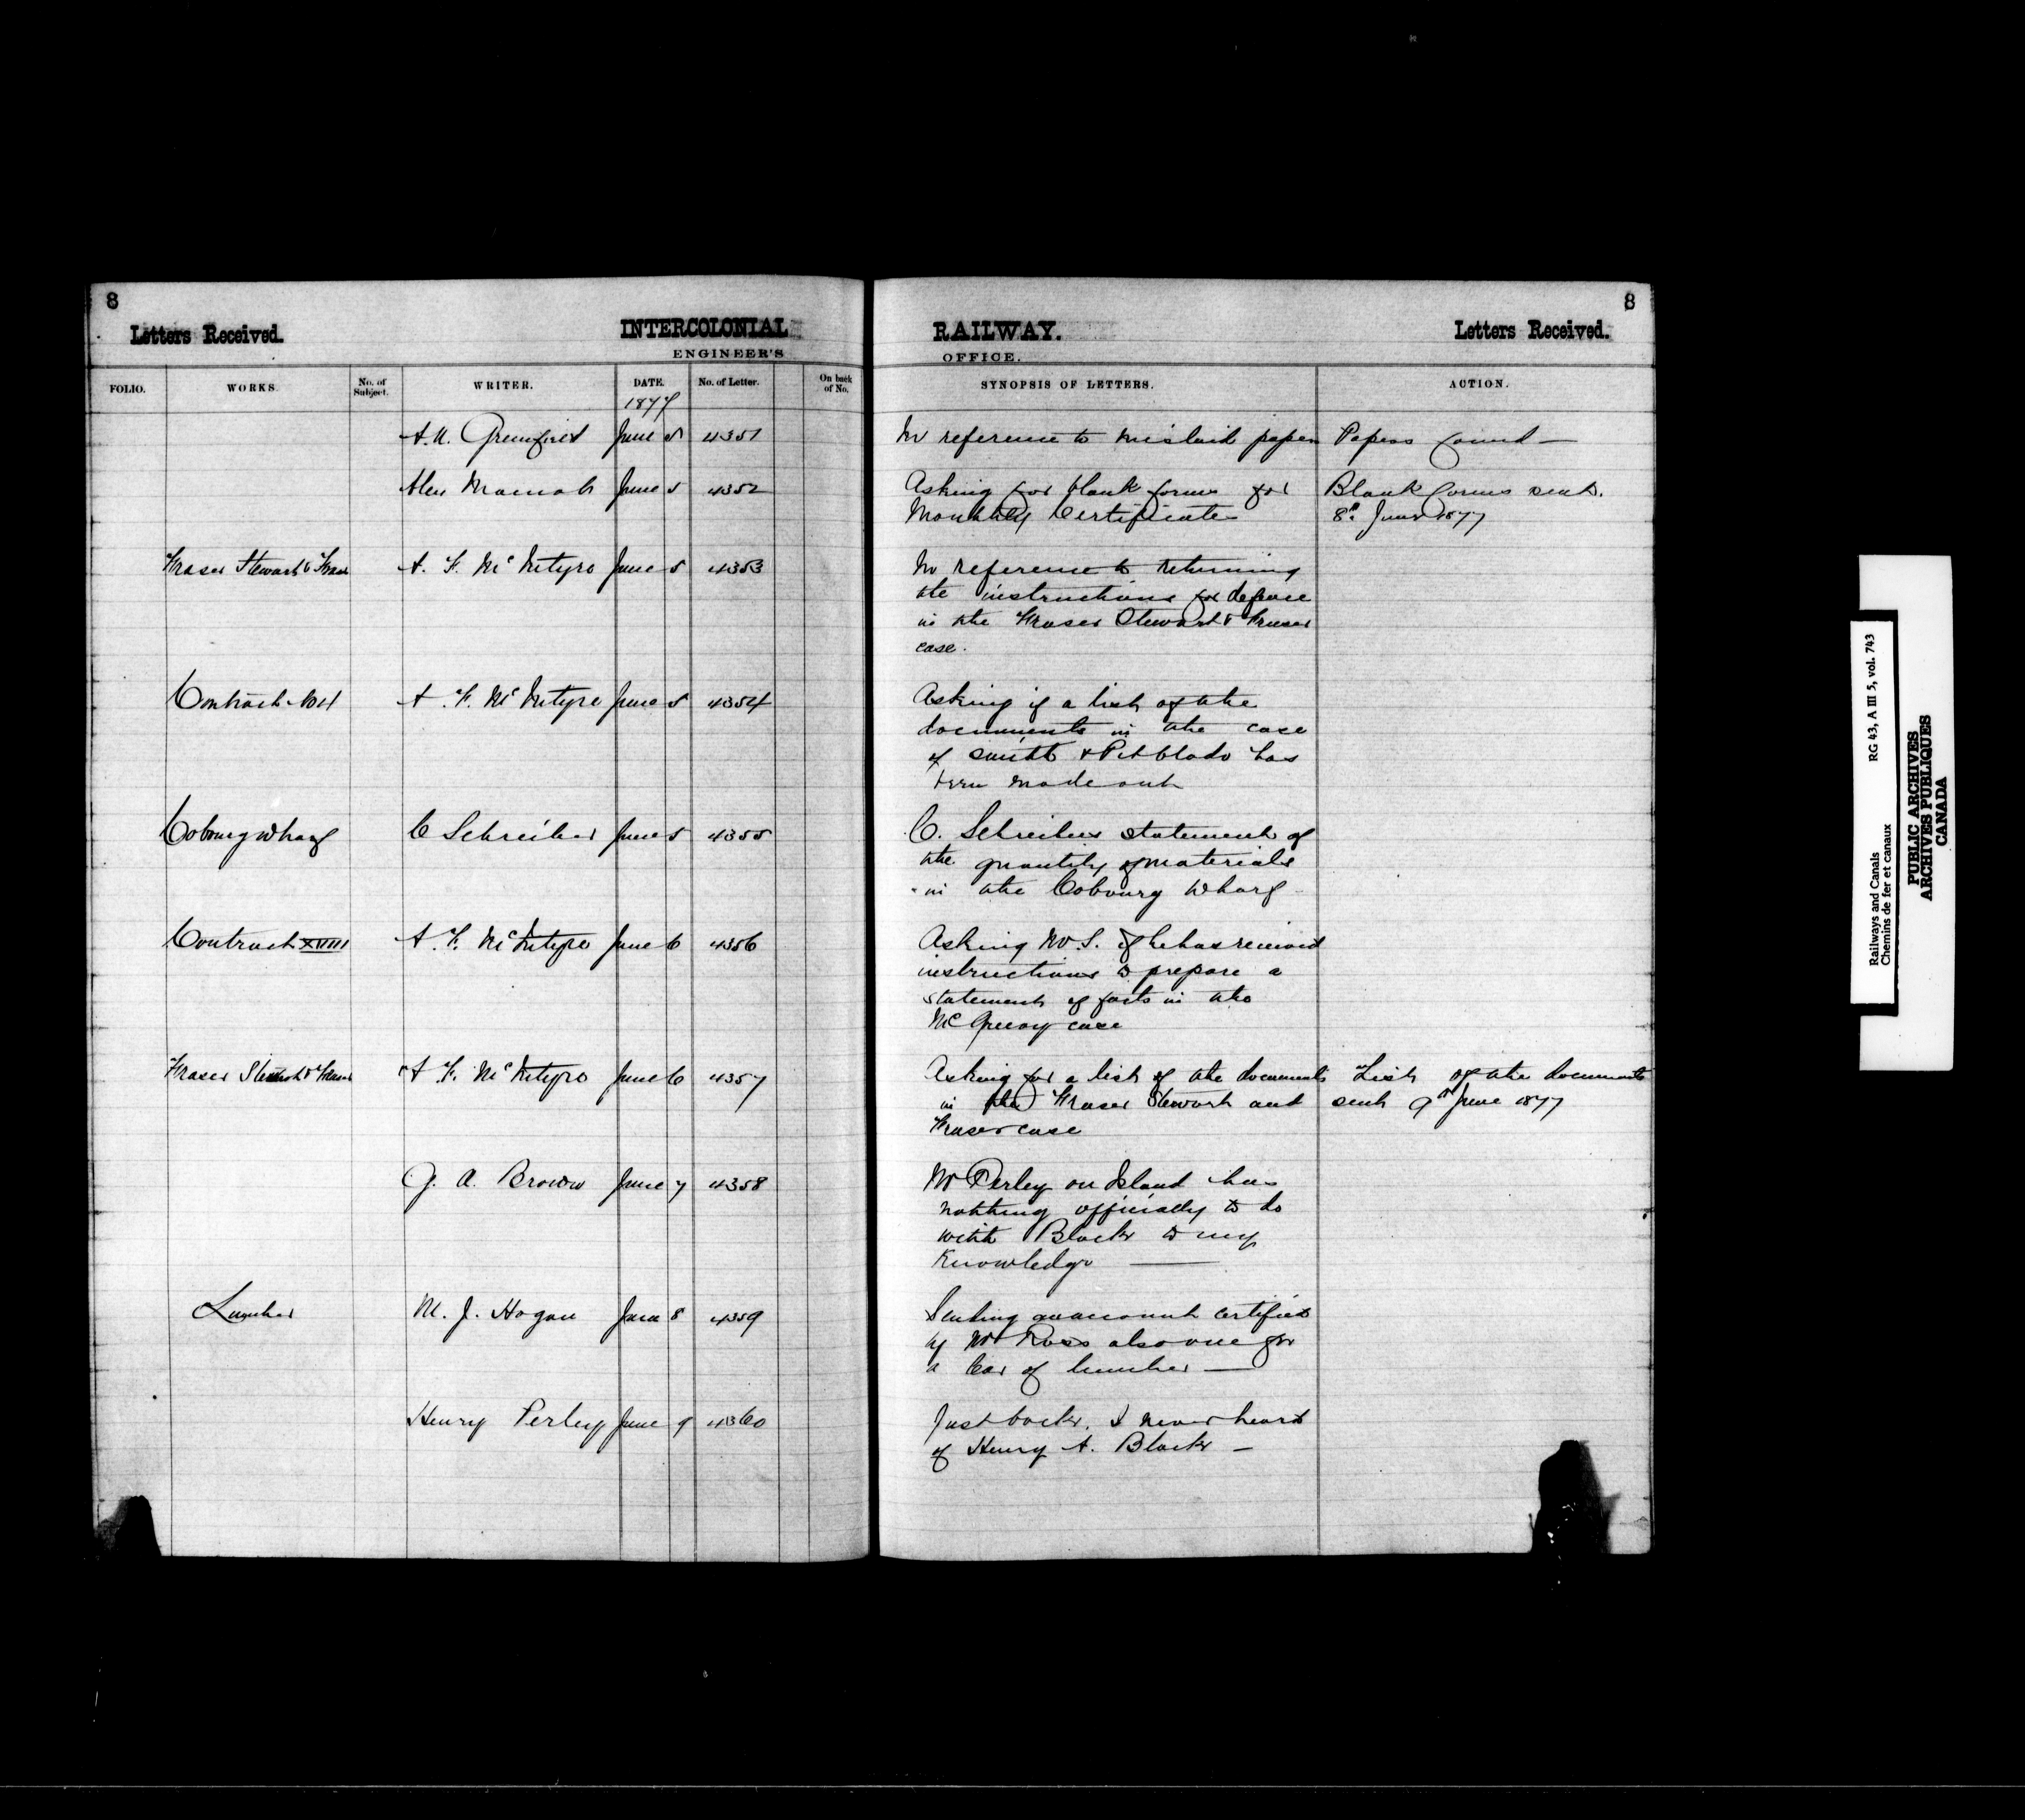 8
8
Letters Received.
INTERCOLONIAL
RAILWAY.
Letters Received.
ENGINEER'S
OFFICE.
FOLIO. WORKS. No. of Subject. WRITER. DATE. No. of Letter. On back of No. SYNOPSIS OF LETTERS. ACTION.
1877
June 5 4351 In reference to mislaid papers Papers found —
Alex June 5 4352 Asking for blank forms for Blank forms sent.
Monthly Certificates 8th June 1877
Fraser Stewart & Fraser A. F. McIntyre June 5 4353 In reference to returning
the instructions for defence
in the Fraser Stewart & Fraser
case.
Contract No 4 A. F. McIntyre June 5 4354 Asking if a list of the
documents in the case
of Smith & Pitblado has
been made out
Cobourg Wharf C Schreiber June 5 4355 C. Schreibers statement of
the quantity of materials
in the Cobourg Wharf
Contract XVIII A. F. McIntyre June 6 4356 Asking if he has received
instructions to prepare a
statement of facts in the
McGreevy case
Fraser Stewart & Fraser A. F. McIntyre June 6 4357 Asking for a list of the documents List of the documents
in the Fraser Stewart and sent 9th June 1877
Fraser case
J. A. Brown June 7 4358 Mr Perley on Island has
nothing officially to do
with Black to my
Knowledge —
Lumber M. J. Hogan June 8 4359 Sending an account certified
by Mr Ross also one for
a Car of lumber —
Henry Perley June 9 4360 Just back. I never heard
of Henry A. Black —
Railways and Canals RG 43, A III 5, vol. 743
Chemins de fer et canaux
PUBLIC ARCHIVES
ARCHIVES PUBLIQUES
CANADA